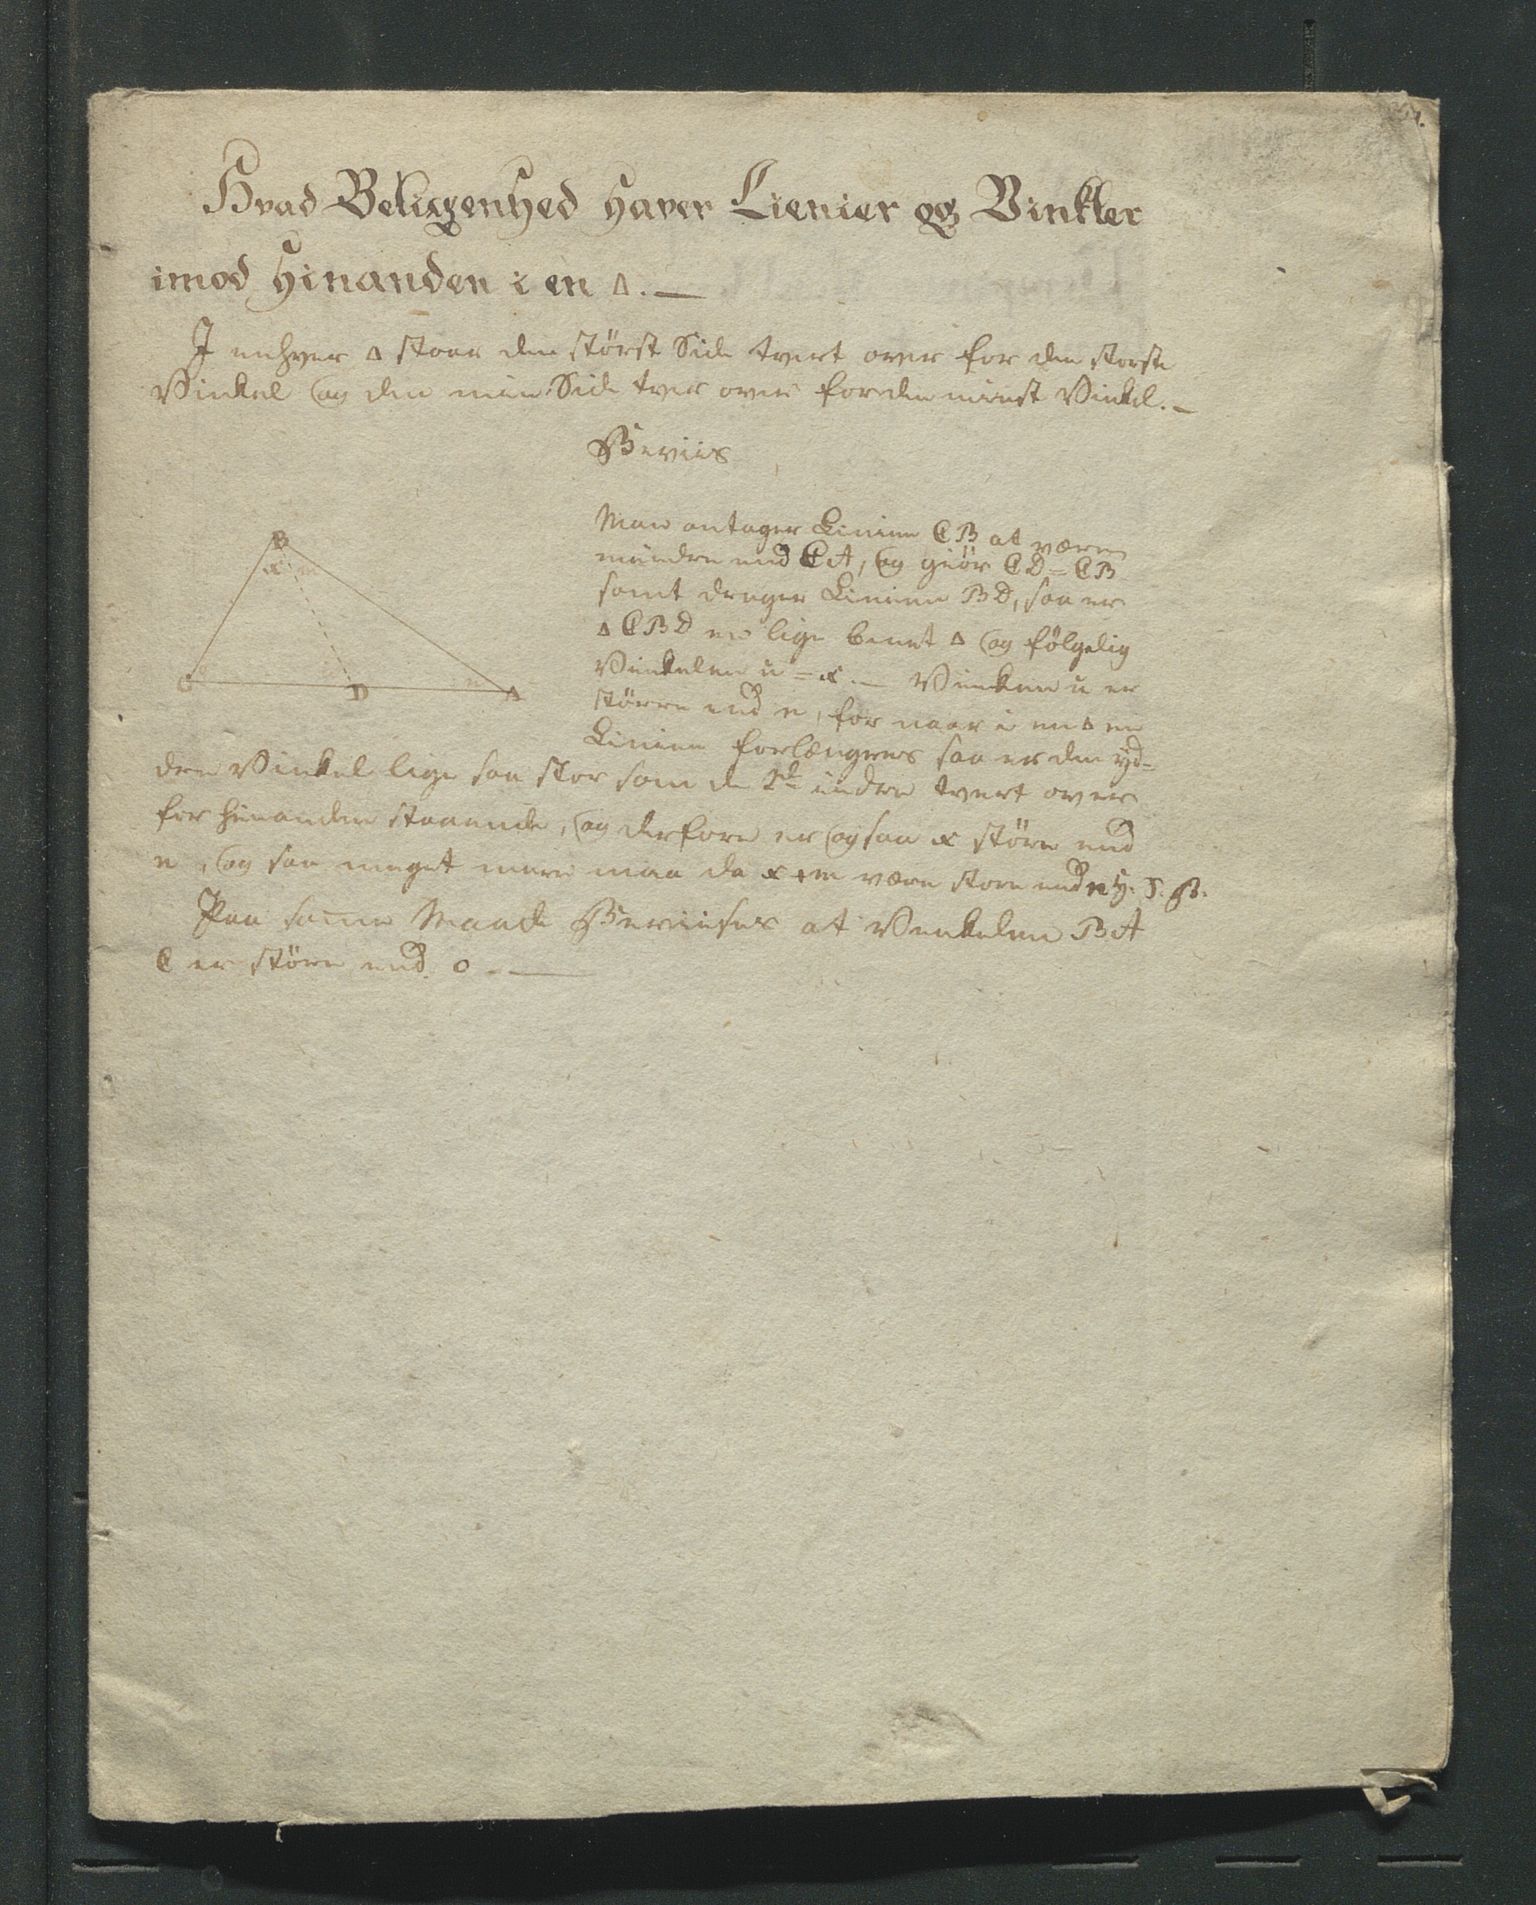 Hvad Beligenhed haver Lienier og Vinkler
imod hinanden i en Δ. —
I enhver Δ staar den störst Side tvert over for den storste
Vinkel og den min Side tver over for den minst Vinkel. —
Beviis
Man antager Linien CB at være
mindre end CA, og giör CD = CB
samt drager Linien BD, saa er
Δ CBD en lige benet Δ og fölgelig
Vinkelen u = x. — Vinken u er
större end n, for naar i en Δ en
Linien forlænges saa er den yd-
dre Vinkel lige saa stor som de 2de indre tvert over
for hinanden staaende, og derfore er ogsaa x störe end
n, og saa meget mere maa da x + m være store end n H. S. B.
Paa samme Maade Beviises at Venkelen BA
C er störe end o —
B
x m
C
D
n A